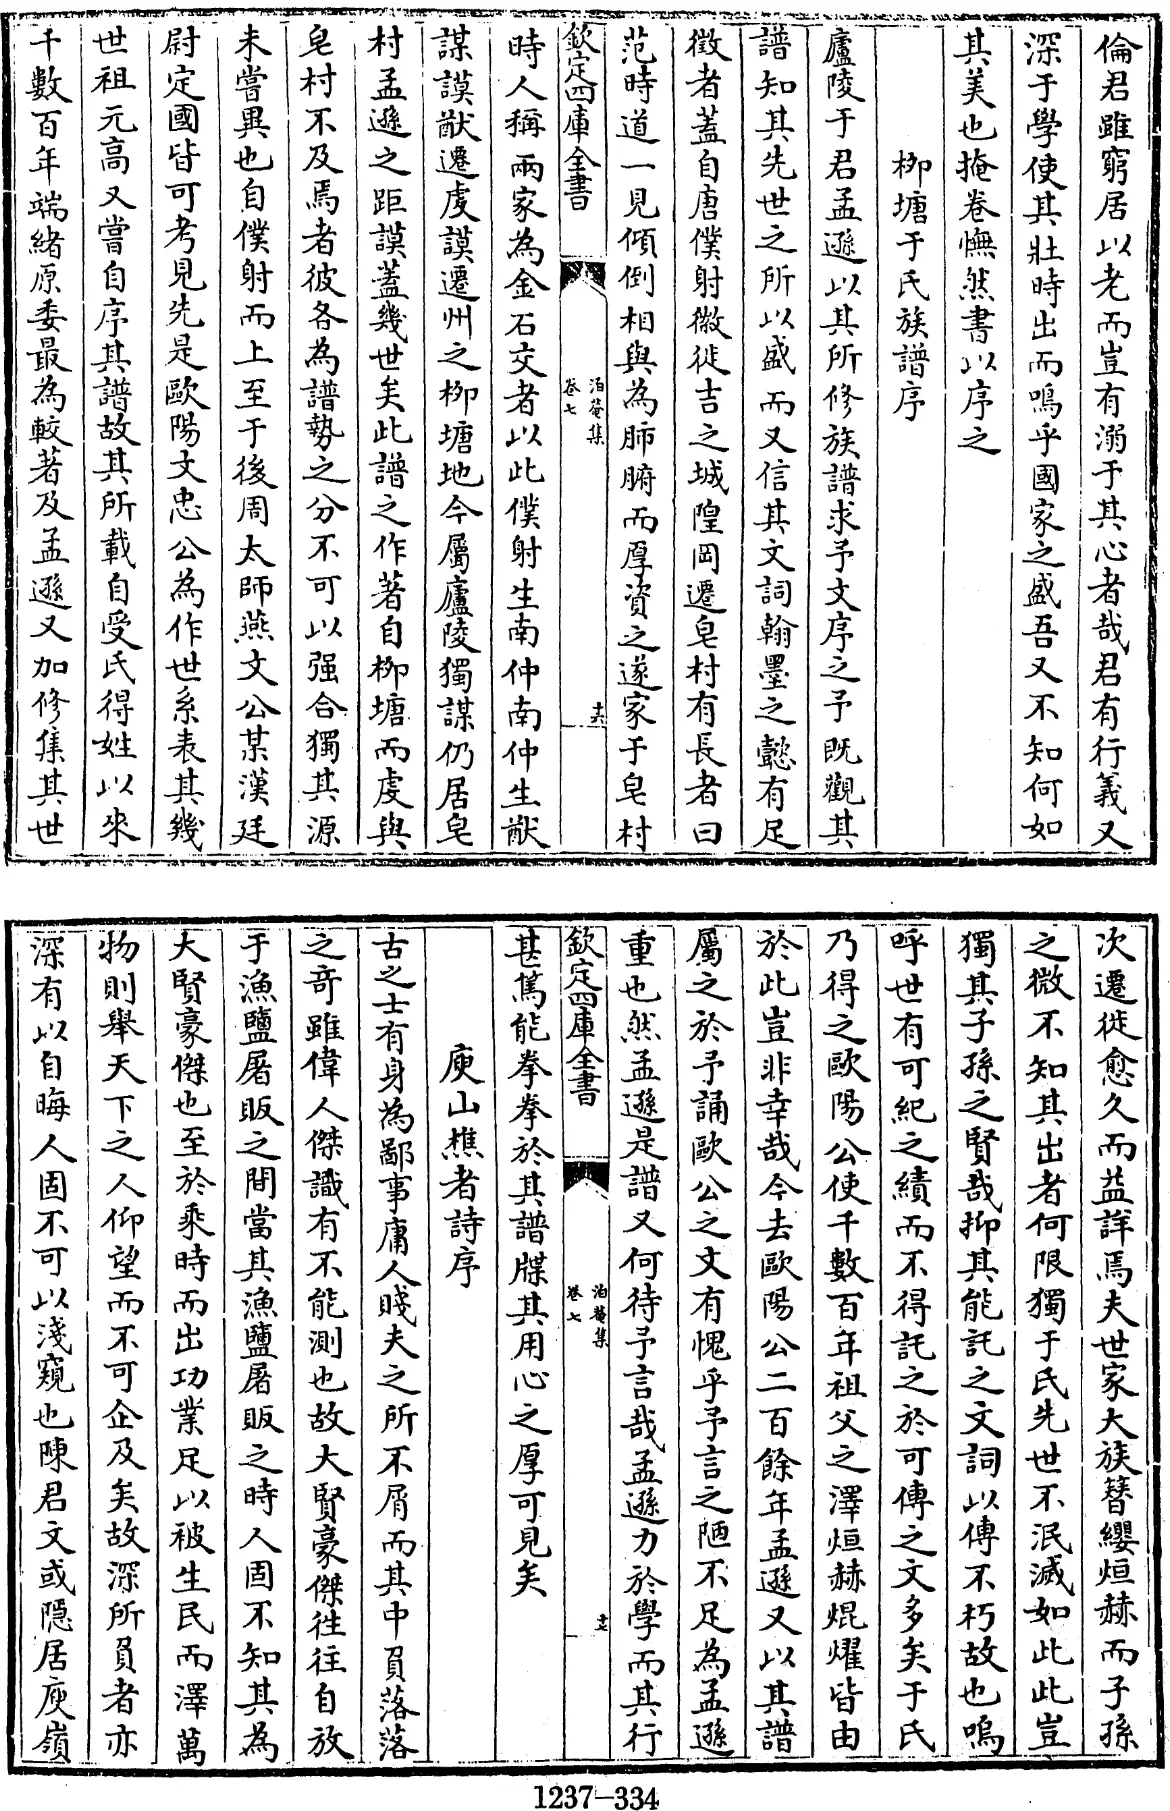 倫君雖窮居以老而豈有溺于其心者哉君有行義又
深于學使其壯時出而鳴乎國家之盛吾又不知何如
其美也掩卷憮然書以序之
柳塘于氏族譜序
廬陵于君孟遜以其所修族譜求予文序之予既觀其
譜知其先世之所以盛而又信其文詞翰墨之懿有足
徵者蓋自唐僕射徽徙吉之城隍岡遷皂村有長者曰
范時道一見傾倒相與為肺腑而厚資之遂家于皂村
欽定四庫全書
泊菴集
卷七
十六
時人稱兩家為金石交者以此僕射生南仲南仲生猷
謀謨猷遷虔謨遷州之柳塘地今屬廬陵獨謀仍居皂
村孟遜之距謨蓋幾世矣此譜之作著自柳塘而虔與
皂村不及焉者彼各為譜勢之分不可以强合獨其源
未嘗異也自僕射而上至于後周太師燕文公某漢廷
尉定國皆可考見先是歐陽文忠公為作世系表其幾
世祖元高又嘗自序其譜故其所載自受氏得姓以來
千數百年端緒原委最為較著及孟遜又加修集其世
次遷徙愈久而益詳焉夫世家大族簪纓烜赫而子孫
之微不知其出者何限獨于氏先世不泯滅如此此豈
獨其子孫之賢哉抑其能託之文詞以傳不朽故也嗚
呼世有可紀之績而不得託之於可傳之文多矣于氏
乃得之歐陽公使千數百年祖父之澤烜赫焜燿皆由
於此豈非幸哉今去歐陽公二百餘年孟遜又以其譜
屬之於予誦歐公之文有愧乎予言之陋不足為孟遜
重也然孟遜是譜又何待予言哉孟遜力於學而其行
欽定四庫全書
泊菴集
卷七
十七
甚篤能拳拳於其譜牒其用心之厚可見矣
庾山樵者詩序
古之士有身為鄙事庸人賤夫之所不屑而其中負落落
之奇雖偉人傑識有不能測也故大賢豪傑往往自放
于漁鹽屠販之間當其漁鹽屠販之時人固不知其為
大賢豪傑也至於乘時而出功業足以被生民而澤萬
物則舉天下之人仰望而不可企及矣故深所負者亦
深有以自晦人固不可以淺窺也陳君文或隱居庾嶺
1237-334